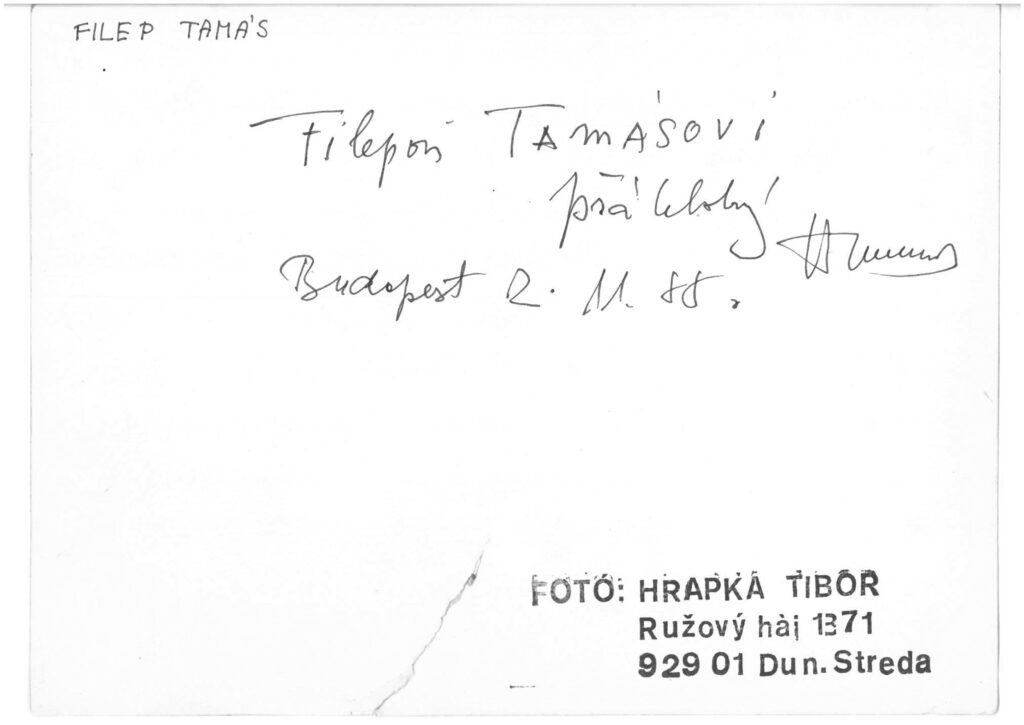 FILEP TAMÁS
Filepovi TAMÁSOVI
Budapest 2. 11. 88.
FOTÓ: HRAPKA TIBOR
Ružový háj 1371
929 01 Dun. Streda